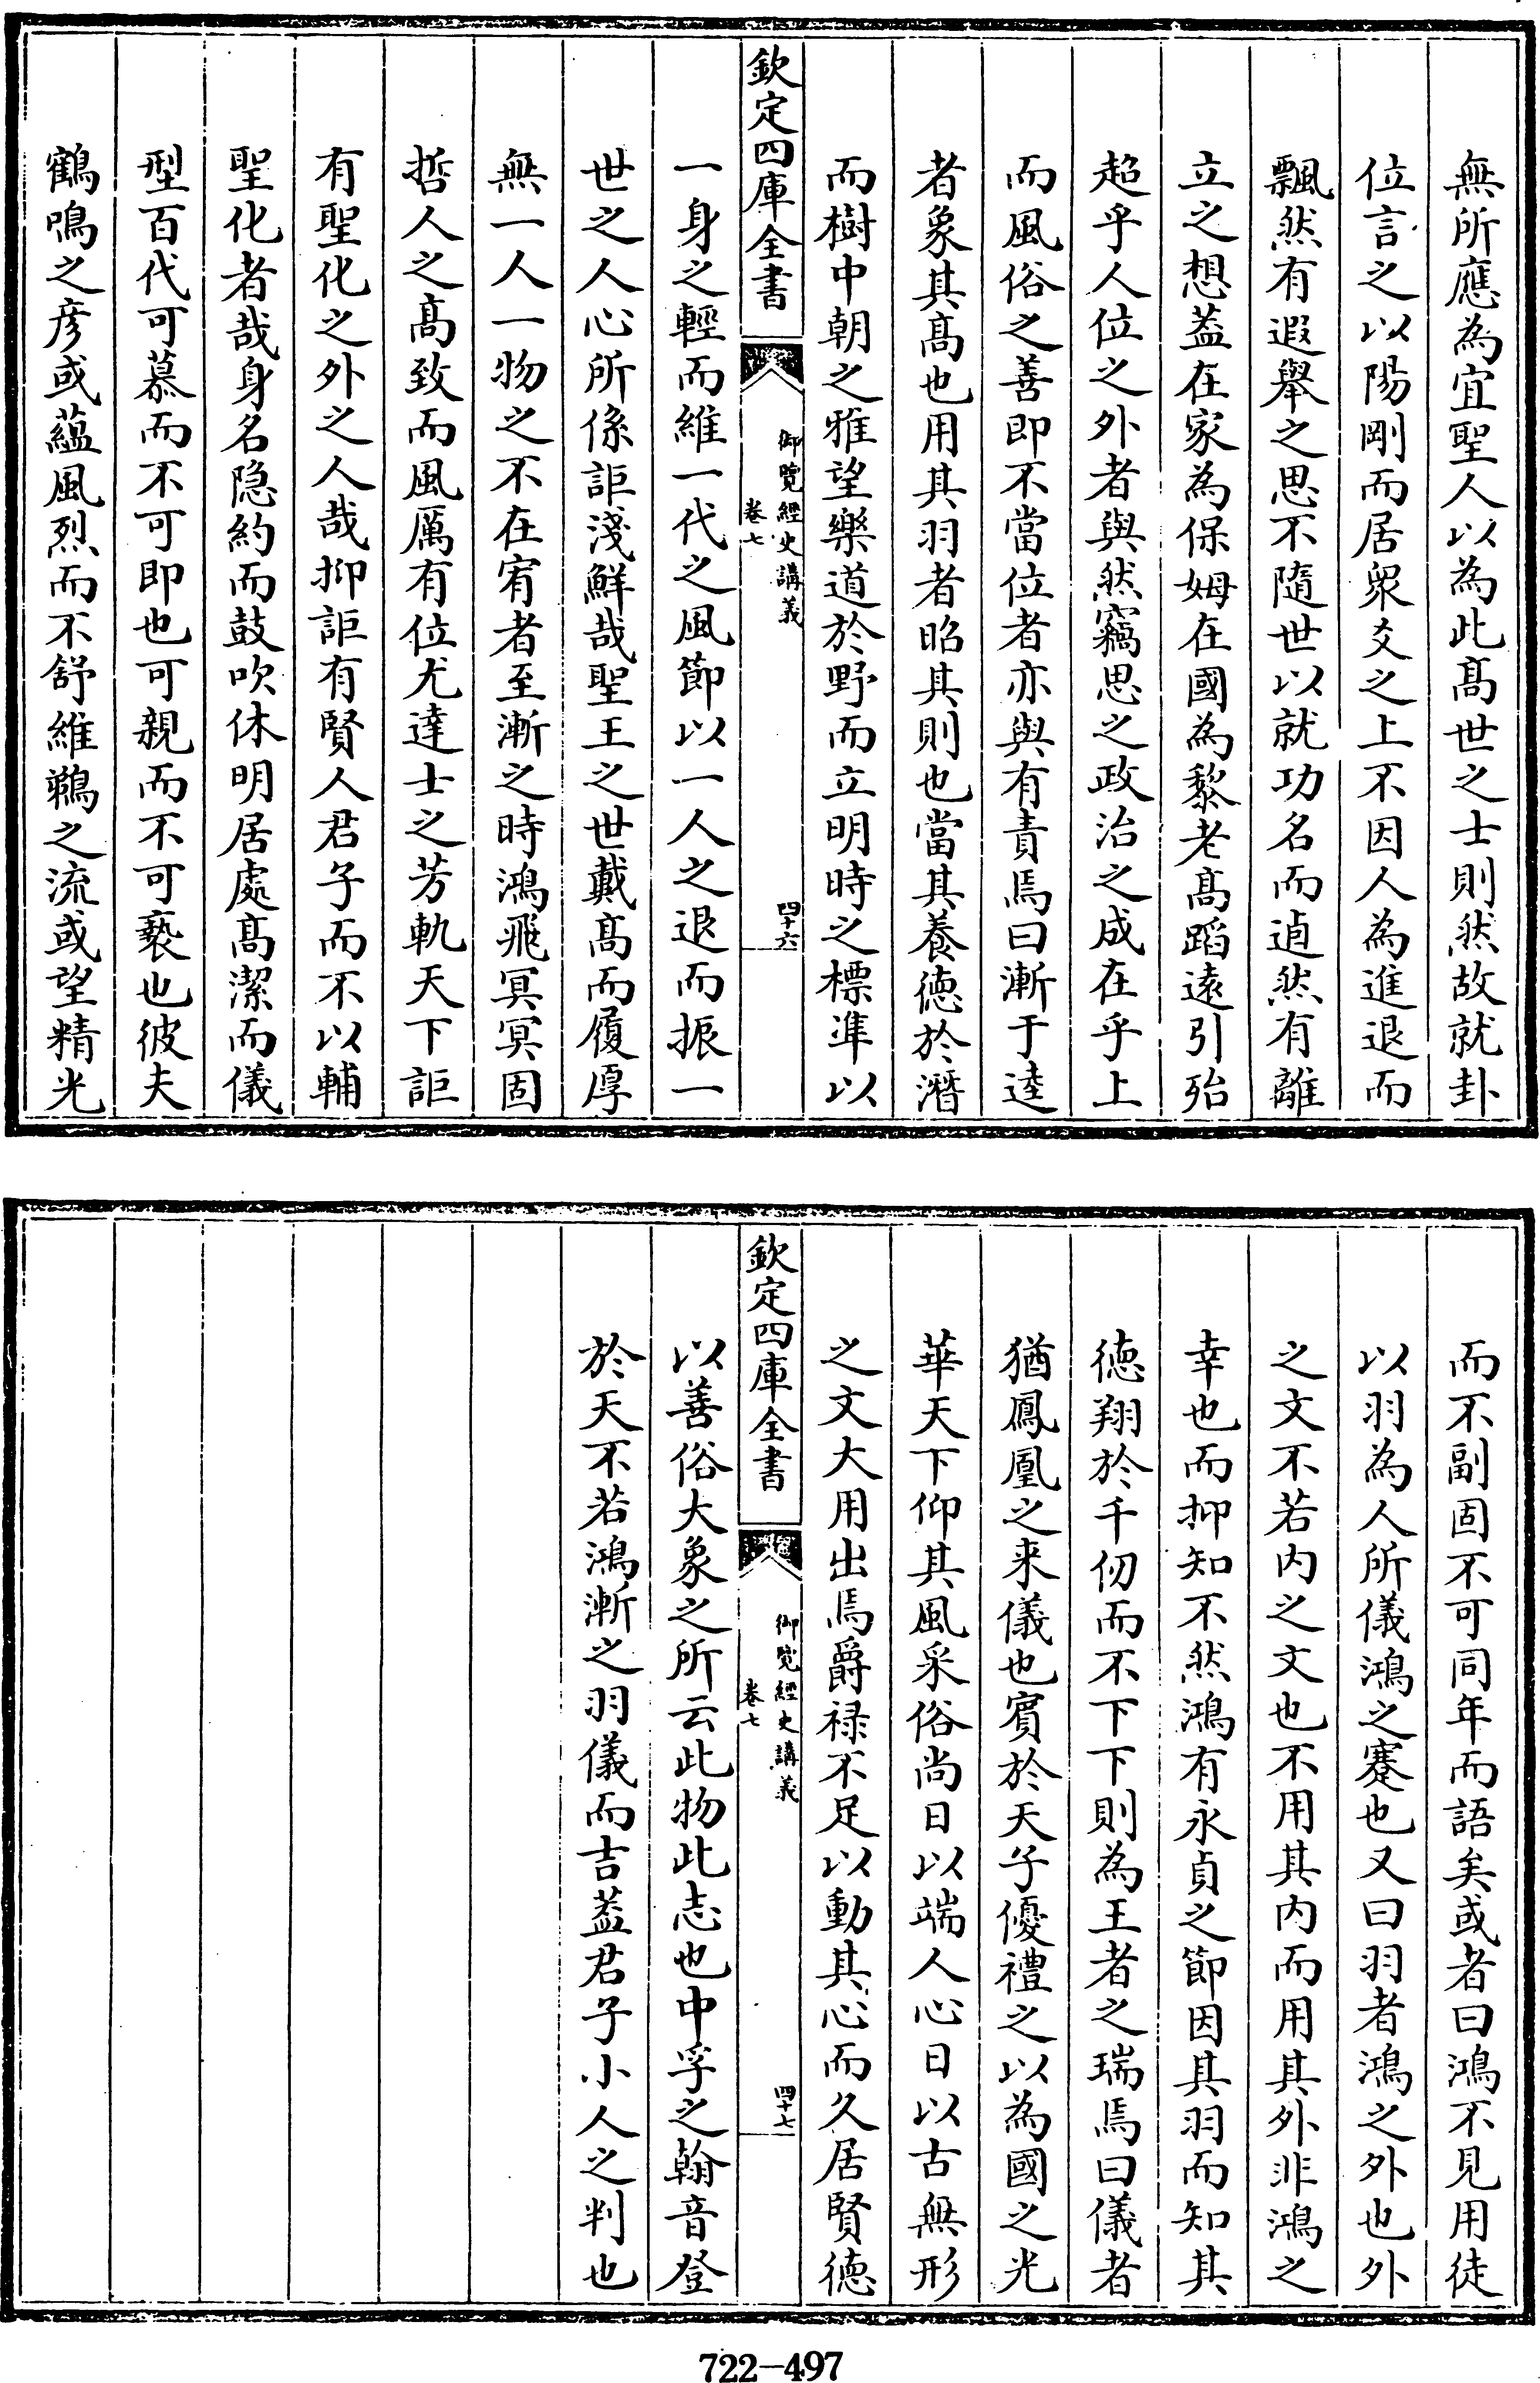 無所應為宜聖人以為此髙世之士則然故就卦
位言之以陽剛而居衆爻之上不因人為進退而
飄然有遐舉之思不隨世以就功名而逌然有離
立之想葢在家為保姆在國為黎老髙蹈遠引殆
超乎人位之外者與然竊思之政治之成在乎上
而風俗之善即不當位者亦與有責焉曰漸于逵
者象其髙也用其羽者昭其則也當其養徳於潛
而樹中朝之雅望樂道於野而立明時之標凖以
欽定四庫全書
御覽經史講義
卷七
四十六
一身之輕而維一代之風節以一人之退而振一
世之人心所係詎淺鮮哉聖王之世戴髙而履厚
無一人一物之不在宥者至漸之時鴻飛冥冥固
哲人之髙致而風厲有位尤達士之芳軌天下詎
有聖化之外之人哉抑詎有賢人君子而不以輔
聖化者哉身名隐約而鼓吹休明居處髙潔而儀
型百代可慕而不可即也可親而不可褻也彼夫
鶴鳴之彦或藴風烈而不舒維鵜之流或望精光
而不副固不可同年而語矣或者曰鴻不見用徒
以羽為人所儀鴻之蹇也又曰羽者鴻之外也外
之文不若内之文也不用其内而用其外非鴻之
幸也而抑知不然鴻有永貞之節因其羽而知其
徳翔於千仞而不下下則為王者之瑞焉曰儀者
猶鳳凰之来儀也賔於天子優禮之以為國之光
華天下仰其風采俗尚日以端人心日以古無形
之文大用出焉爵禄不足以動其心而久居賢徳
欽定四庫全書
御覽經史講義
卷七
四十七
以善俗大象之所云此物此志也中孚之翰音登
於天不若鴻漸之羽儀而吉葢君子小人之判也
722-497